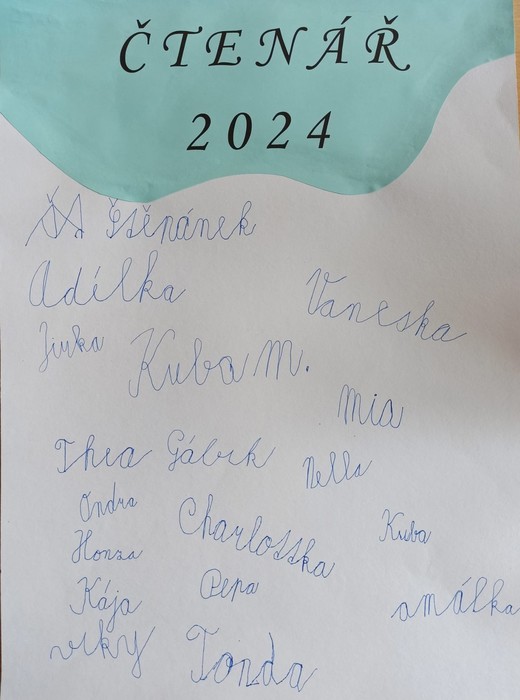 ČTENÁŘ
2024
Štěpánek
Adélka
Vaneska
Jirka
Kuba M.
Mia
Thea Gábík
Nella
Ondra
Charlottka
Kuba
Honza
Kája
Pepa
amálka
viky
Tonda